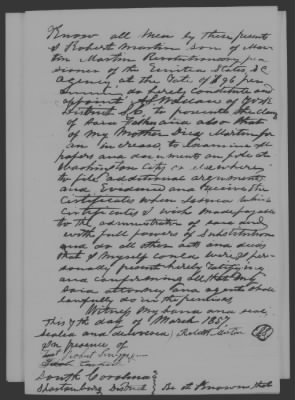 Know all Men by these presents
I Robert Martin Son of Mar-
tin Martin Revolutionary pen
sioner of the United States, SC
Agency at the rate of $96 per
annum do hereby constitute and
appoint of York
District SC to prosecute the claim
of said Father and also that
of my Mother Dicy Martin for
an increase, to examine all
papers and documents on file at
Washington City or elsewhere
to file additional argument
and Evidence and receive the
Certificates when issued which
Certificates I wish made payable
to the administrator and
with full powers of Substitution
and do all other acts and deeds
that I myself could were I per-
sonally present hereby ratifying
and confirming all that my
said attorney and agent shall
lawfully do in the premises
Witness my hand and seal
This 7th day of March 1857
Sealed and delivered Robert Martin
In presence of
Robert
South Carolina
Spartanburg District } Be it Known that